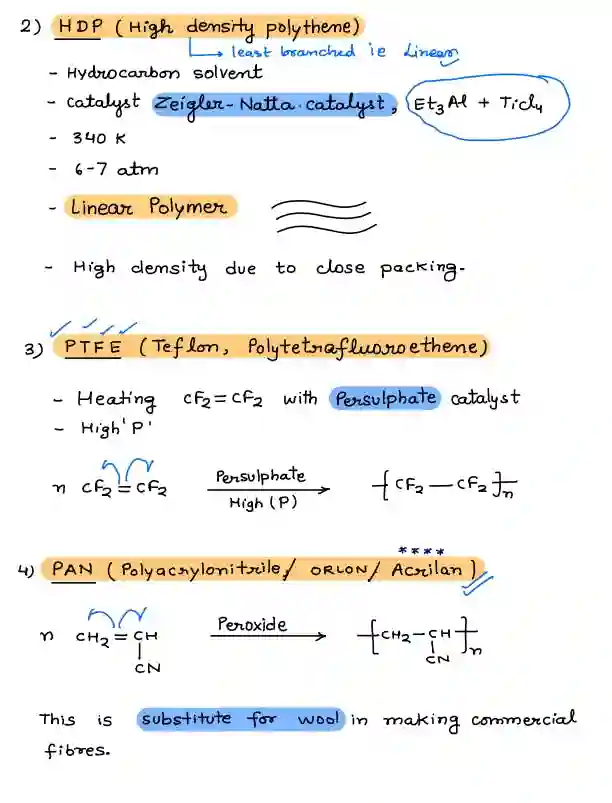 2) HDP (High density polytheme)
least branched ie Linear
- Hydrocarbon solvent
- catalyst Zeigler-Natta catalyst, Et3Al + Ticl4
- 340 K
- 6-7 atm
- Linear Polymer
- High density due to close packing.
3) PTFE (Teflon, Polytetrafluoroethene)
- Heating CF2=CF2 with Persulphate catalyst
- High 'P'
n CF2=CF2 Persulphate High (P) [CF2—CF2]n
****
4) PAN (Polyacrylonitrile/ ORLON/ Acrilan)
n CH2=CH Peroxide [CH2-CH]n
CN CN
This is substitute for wool in making commercial
fibres.